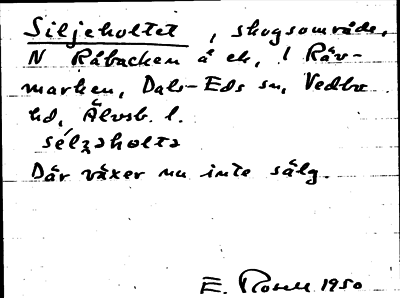 Siljeholtet, skogsområde,
N Råbacken å ek, 1 Räv-
marken, Dals-Eds sn, Vedbo
hd, Älvsb. l.
sélzaholta
Där växer nu inte sälg.
E. Rosell 1950